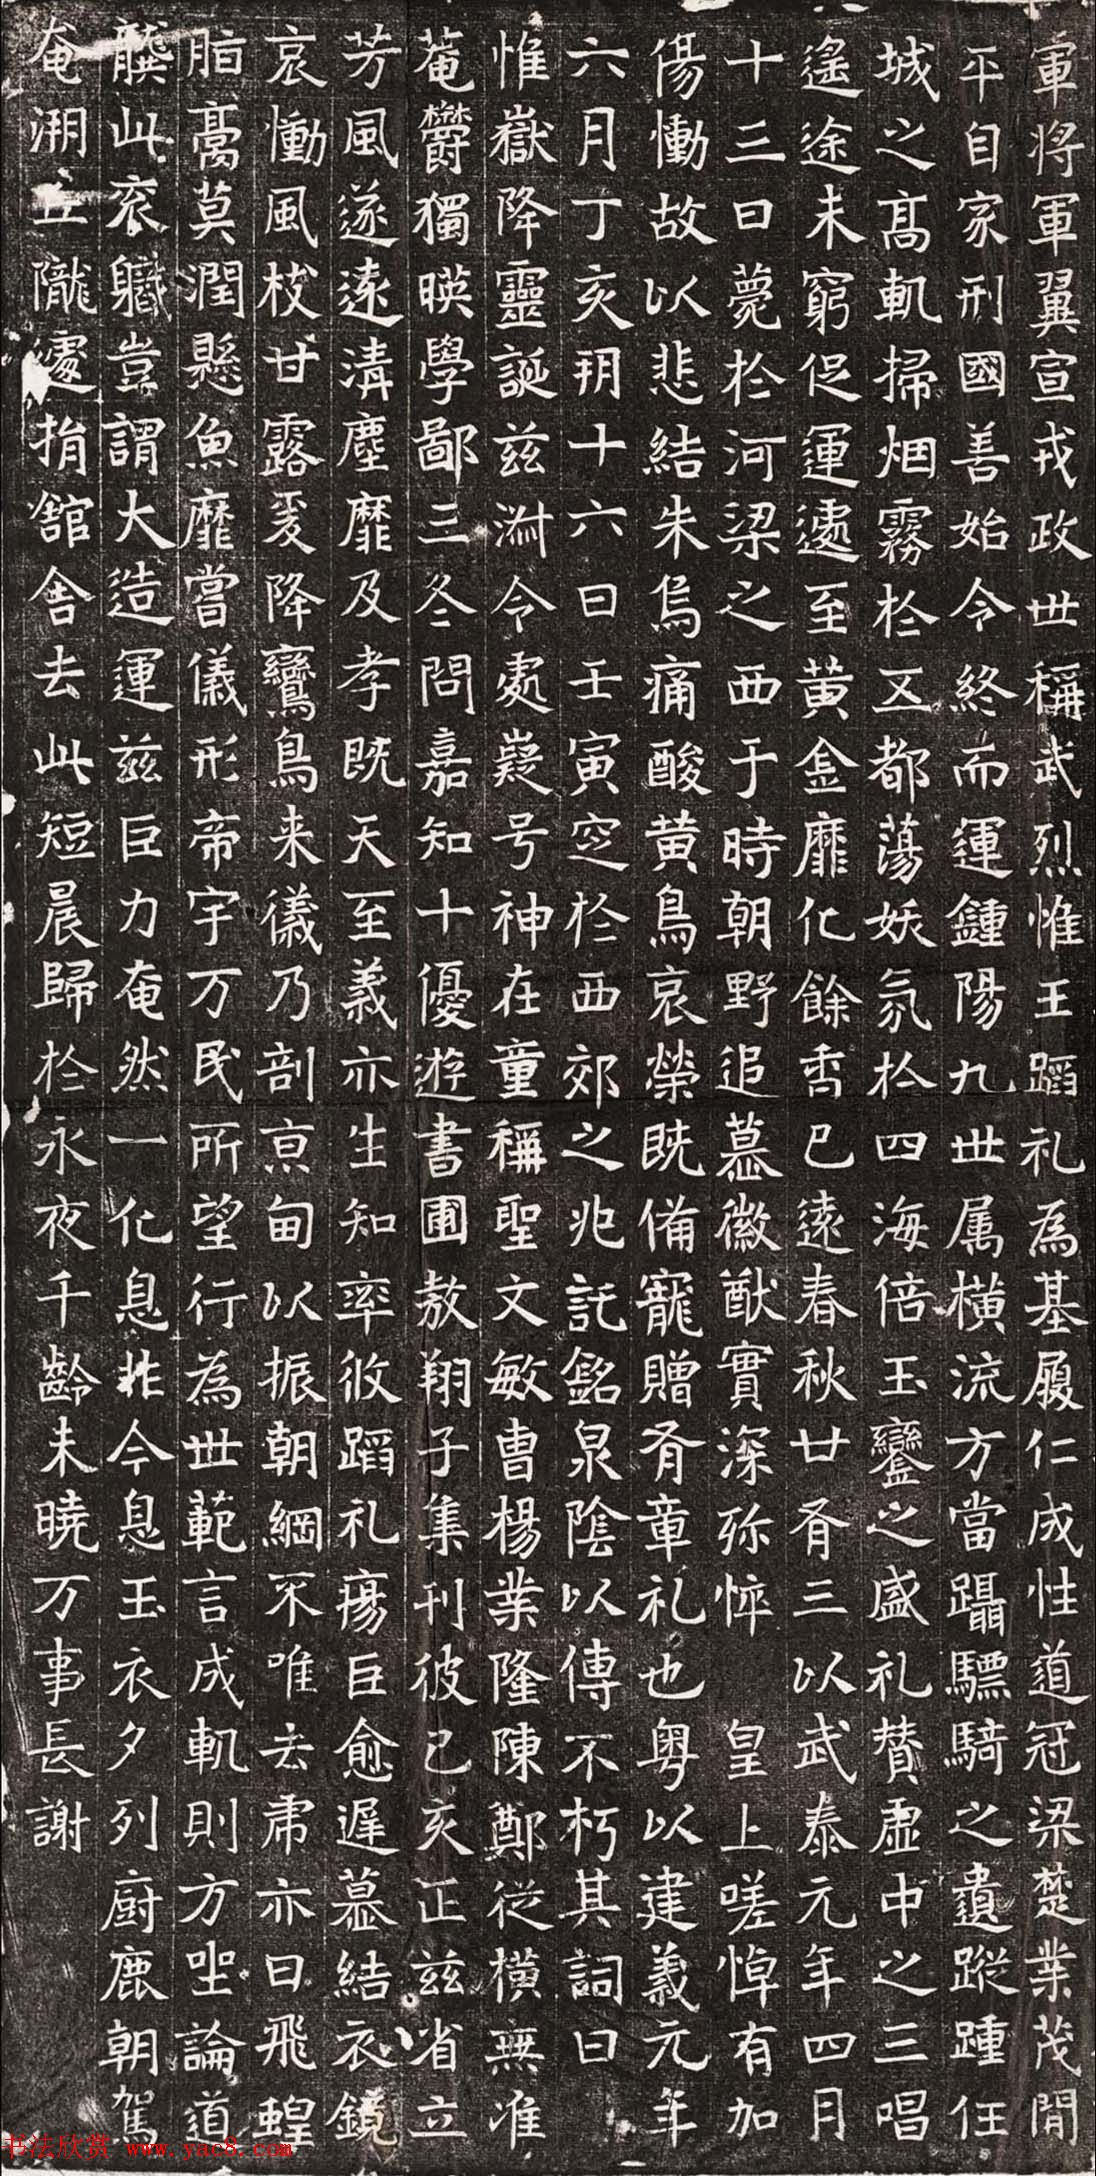 軍將軍翼宣戎政世稱武烈惟王蹈礼為基履仁成性道冠梁楚業茂閒
平自家刑國善始令終而運鍾陽九世属橫流方當躡驃騎之遺蹤踵任
城之髙軌掃烟霧於五都蕩妖氛於四海倍玉鑾之盛礼賛虛中之三唱
遙途未窮促運遽至黄金靡化餘香已遠春秋廿有三以武泰元年四月
十三日薨於河梁之西于時朝野追慕徽猷實深殄悴 皇上嗟悼有加
傷慟故以悲結朱烏痛酸黄鳥哀榮既備寵贈有章礼也粤以建義元年
六月丁亥玥十六日壬寅窆於西郊之兆託銘泉陰以傳不朽其詞曰
惟嶽降靈誕兹淵令處嶷号神在童稱聖文敏曺楊業隆陳鄭從横無准
菴欝獨暎學鄙三冬問嘉知十優遊書圃敖翔子集刊彼已亥正兹省立
芳風遂遠清塵靡及孝既天至義亦生知率攸蹈礼瘍巨愈遲慕結衣鏡
哀慟風枝甘露爰降鸞鳥来儀乃剖亰甸以振朝綱不唯去肃亦曰飛蝗
脂膏莫潤懸魚靡當儀形帝宇万民所望行為世範言成軌則方坐論道
龔此衮軄豈謂大造運兹巨力奄然一化息非今息玉衣夕列廚鹿朝駕
奄溯丘隴遽捐舘舎去此短晨歸於永夜千齡未曉万事長謝
书法欣赏 www.yac8.com